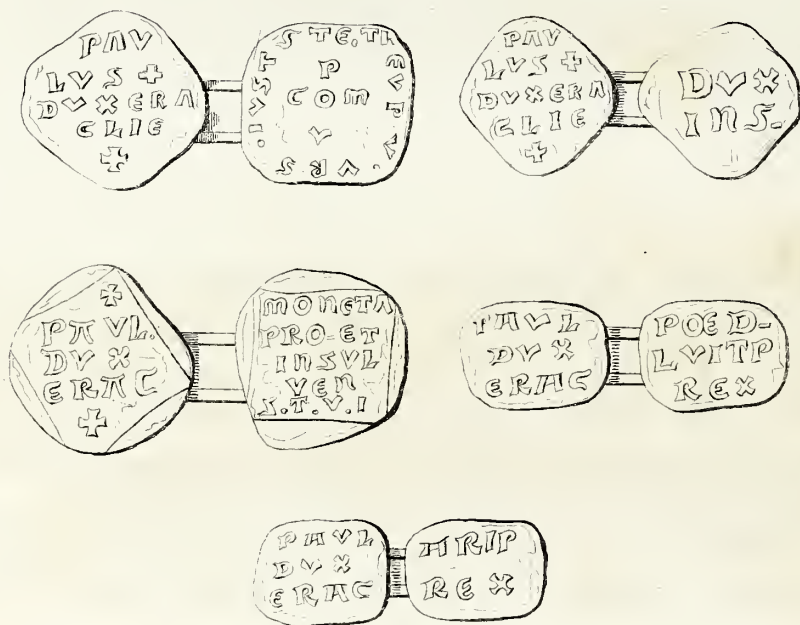 PAV
LVS +
DVX ERA
CLIE
+
IVST STE. THEVPV. VRS
P
COM
V
PAV
LVS +
DVXERA
CLIE
+
DVX
INS.
+
PAVL.
DVX
ERAC
+
MONETA
PRO-ET
INSVL
VEN
S.T.V.I
PAVL
DVX
ERAC
POED-
LVITP
REX
PAVL
DVX
ERAC
ARIP
REX